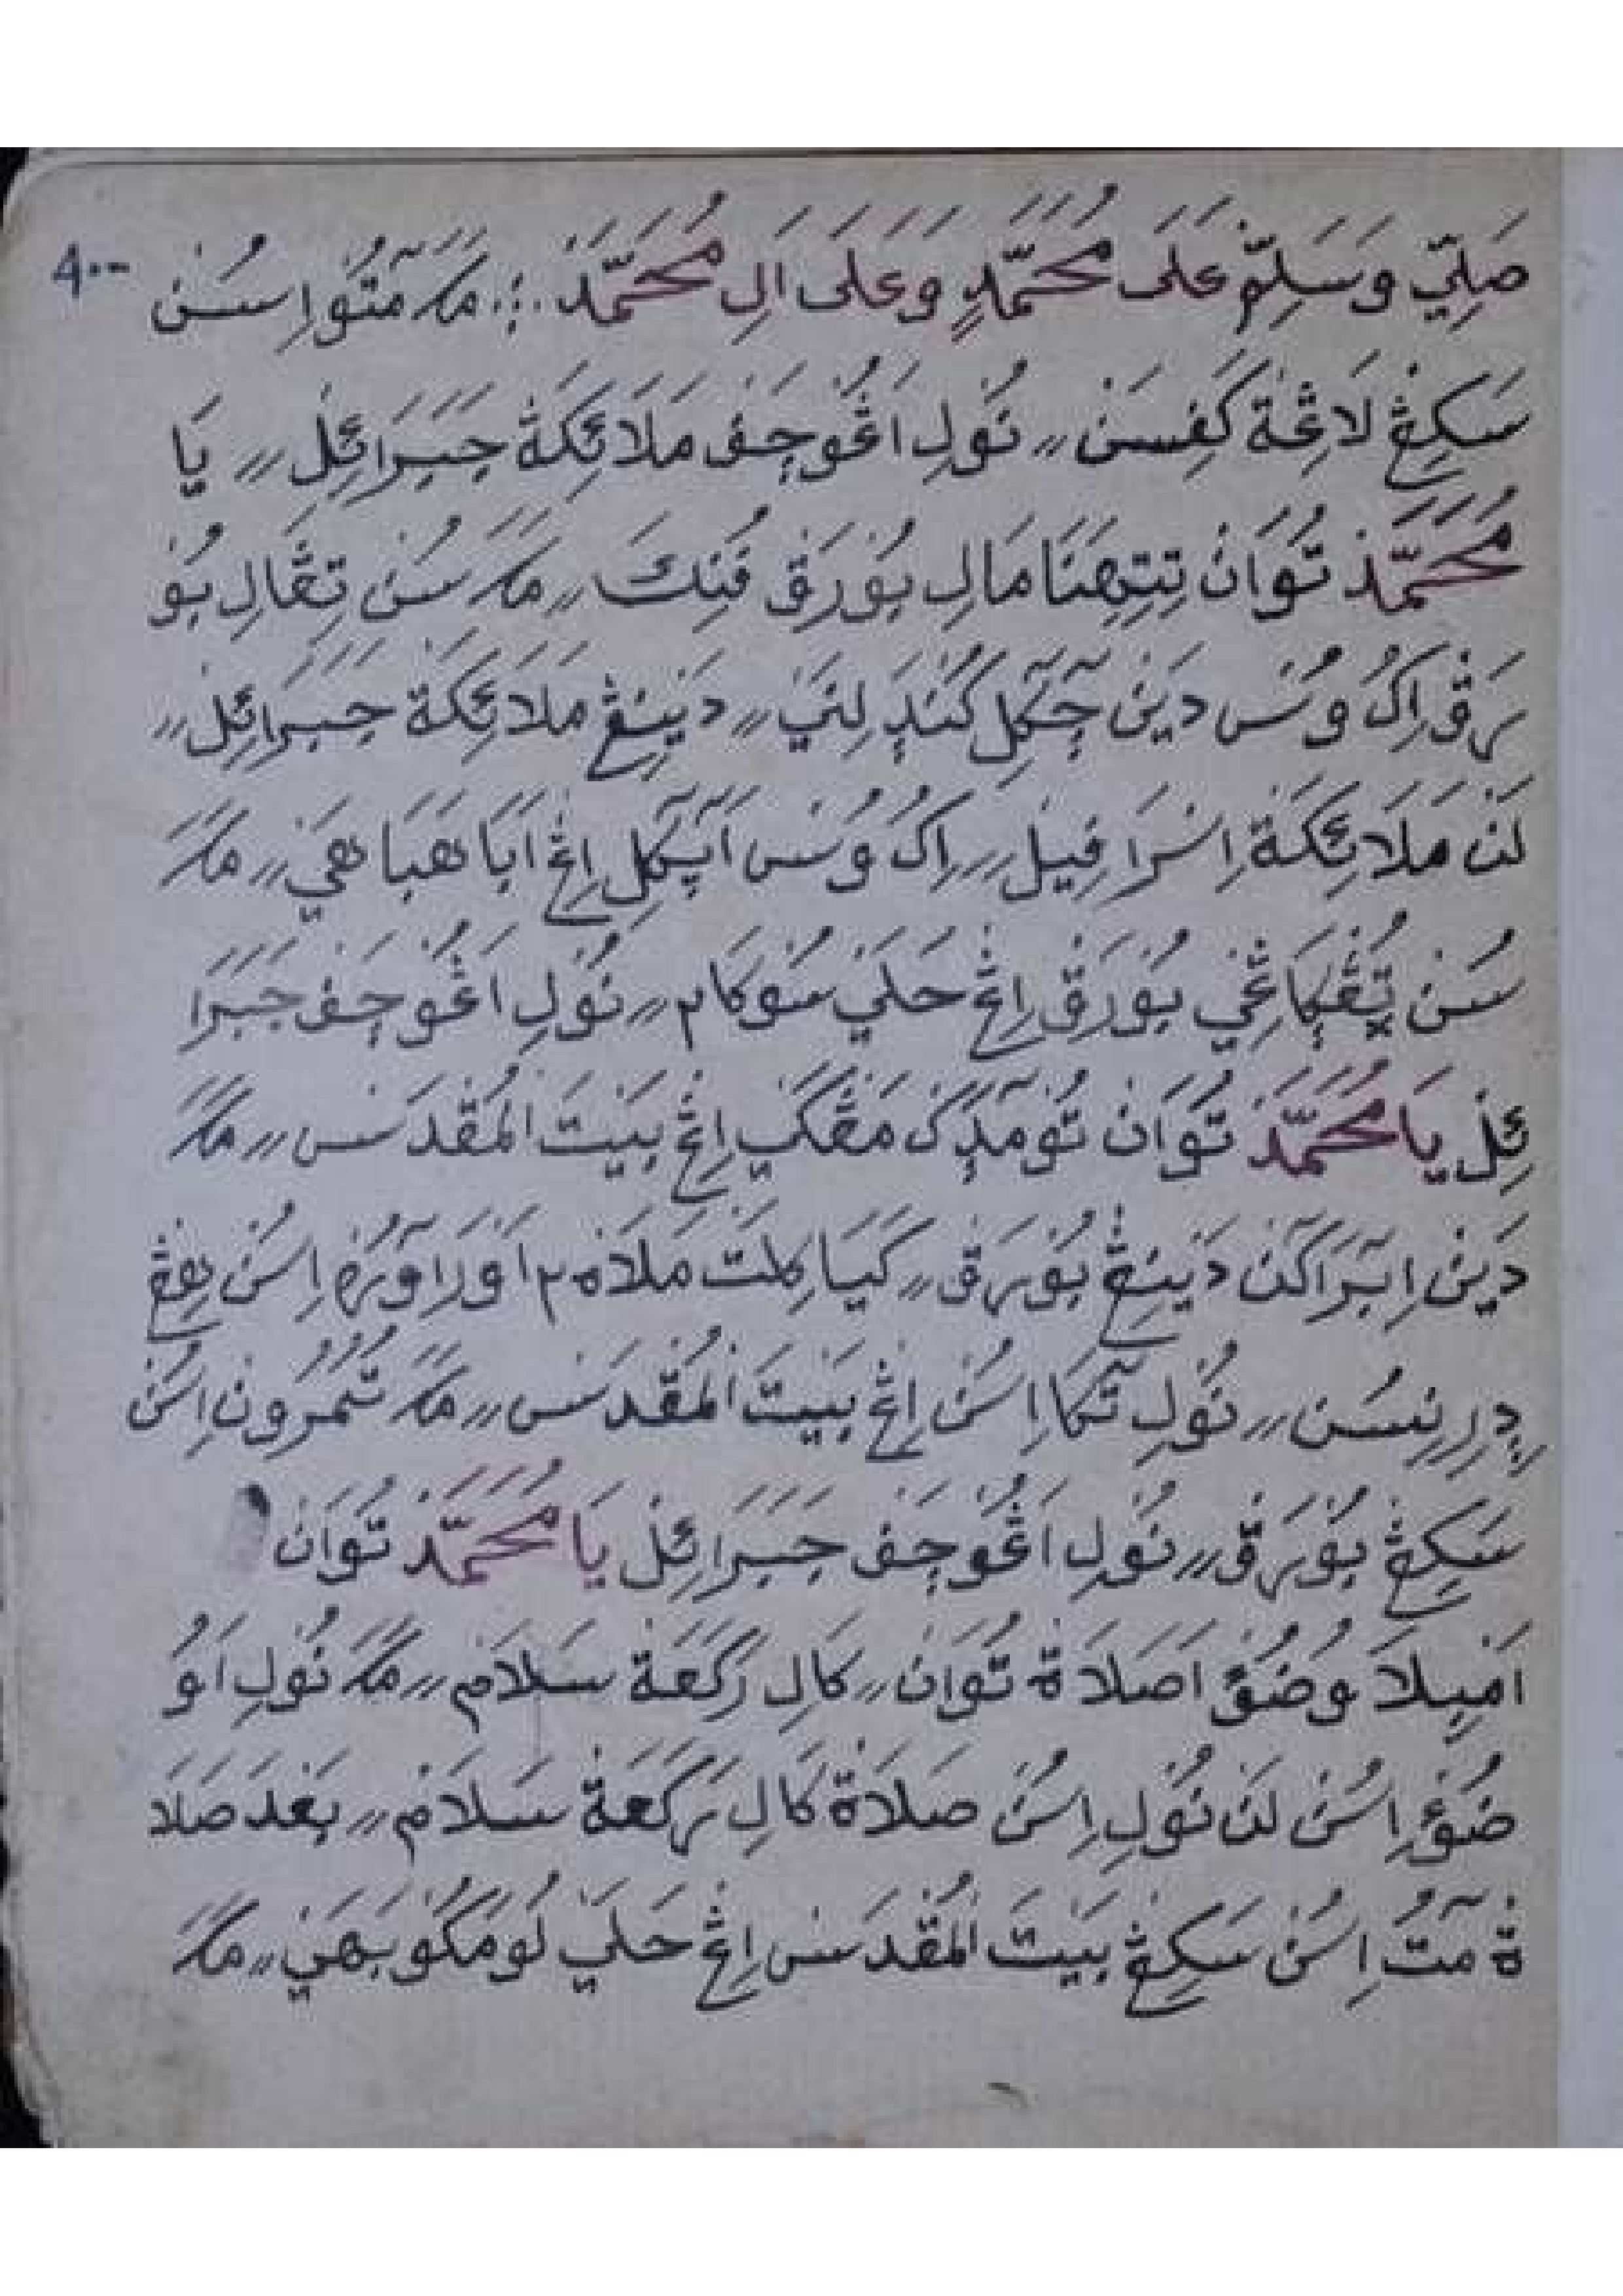 صَلِّي وَسَلِّمْ عَلَى مُحَمَّدٍ وَعَلَى اَلِ مُحَمَّدْ ؞ مَكَ مٓتُوْ اِسُنْ
سَكِڠْ لَاڠِىَة كَفِسَنْ ؍؍ نُوْلِ اَڠُوْچَفْ مَلَائِكَةْ جَبَرَائِلْ ؍؍ يَا
مُحَمَّدْ تُوَانْ تِتِهَنَا مَالِ بُوْرَقْ فُنِكَ ؍؍ مَكَ سُنْ تِڠَالِ بُوْ
رَقْ اِكُ وُسْ دَيْنْ چٓكٓلْ كَنْدَلِنَيْ ؍؍ دَيْنِڠْ مَلَائِكَةْ جَبَرَائِلْ ؍؍
لَنْ مَلَائِكَةْ اِسْرَافِيلْ ؍؍ اِكُ وُسْ اَڽٓكٓلْ اِڠْ اَبَا هَبَاهَيْ ؍؍ مَكَ
سُنْ تُڠْكَاڠِيْ بُوْرَقْ اِڠْ حَلَيْ سُوْكَامْ ؍؍ نُوْلِ اَڠُوْچَفْ جَبَرَا
ئِلْ يَا مُحَمَّدْ تُوَانْ تُوْمَدٓكْ مَڠْكَيْ اِڠْ بَيْتَ الْمُقْدَسْ ؍؍ مَكَ
دَيْنْ اِبٓرَاكٓنْ دَيْنِڠْ بُوْرَقْ ؍؍ كَيَا كِلَتْ مَلَاه٢ اَوْرَا وٓرُهْ اِسُنْ هِڠْ
دِرِنِسُنْ ؍؍ نُوْلِ تٓكَا اِسُنْ اِڠْ بَيْتَ الْمُقْدَسْ ؍؍ مَكَ تُمُرُونْ اِسُنْ
سَكِڠْ بُوْرَقْ ؍؍ نُوْلِ اَڠُوْچَفْ جَبَرَائِلْ يَا مُحَمَّدْ تُوَانْ
اَمْبِلَا وُضُؤْ اَصَلَاةْ تُوَانْ ؍؍ كَالِ رَكَعَةْ سَلَامْ ؍؍ مَكَ نُوْلِ اَوُ
ضُؤْ اِسُنْ لَنْ نُوْلِ اِسُنْ صَلَاةْ كَالِ رَكَعَةْ سَلَامْ ؍؍ بَعْدَ صَلَا
ةْ مٓتُ اِسُنْ سَكِڠْ بَيْتَ الْمُقْدَسْ اِڠْ حَلَيْ لُوْمَكُوْ بَهَيْ ؍؍ مَكَ